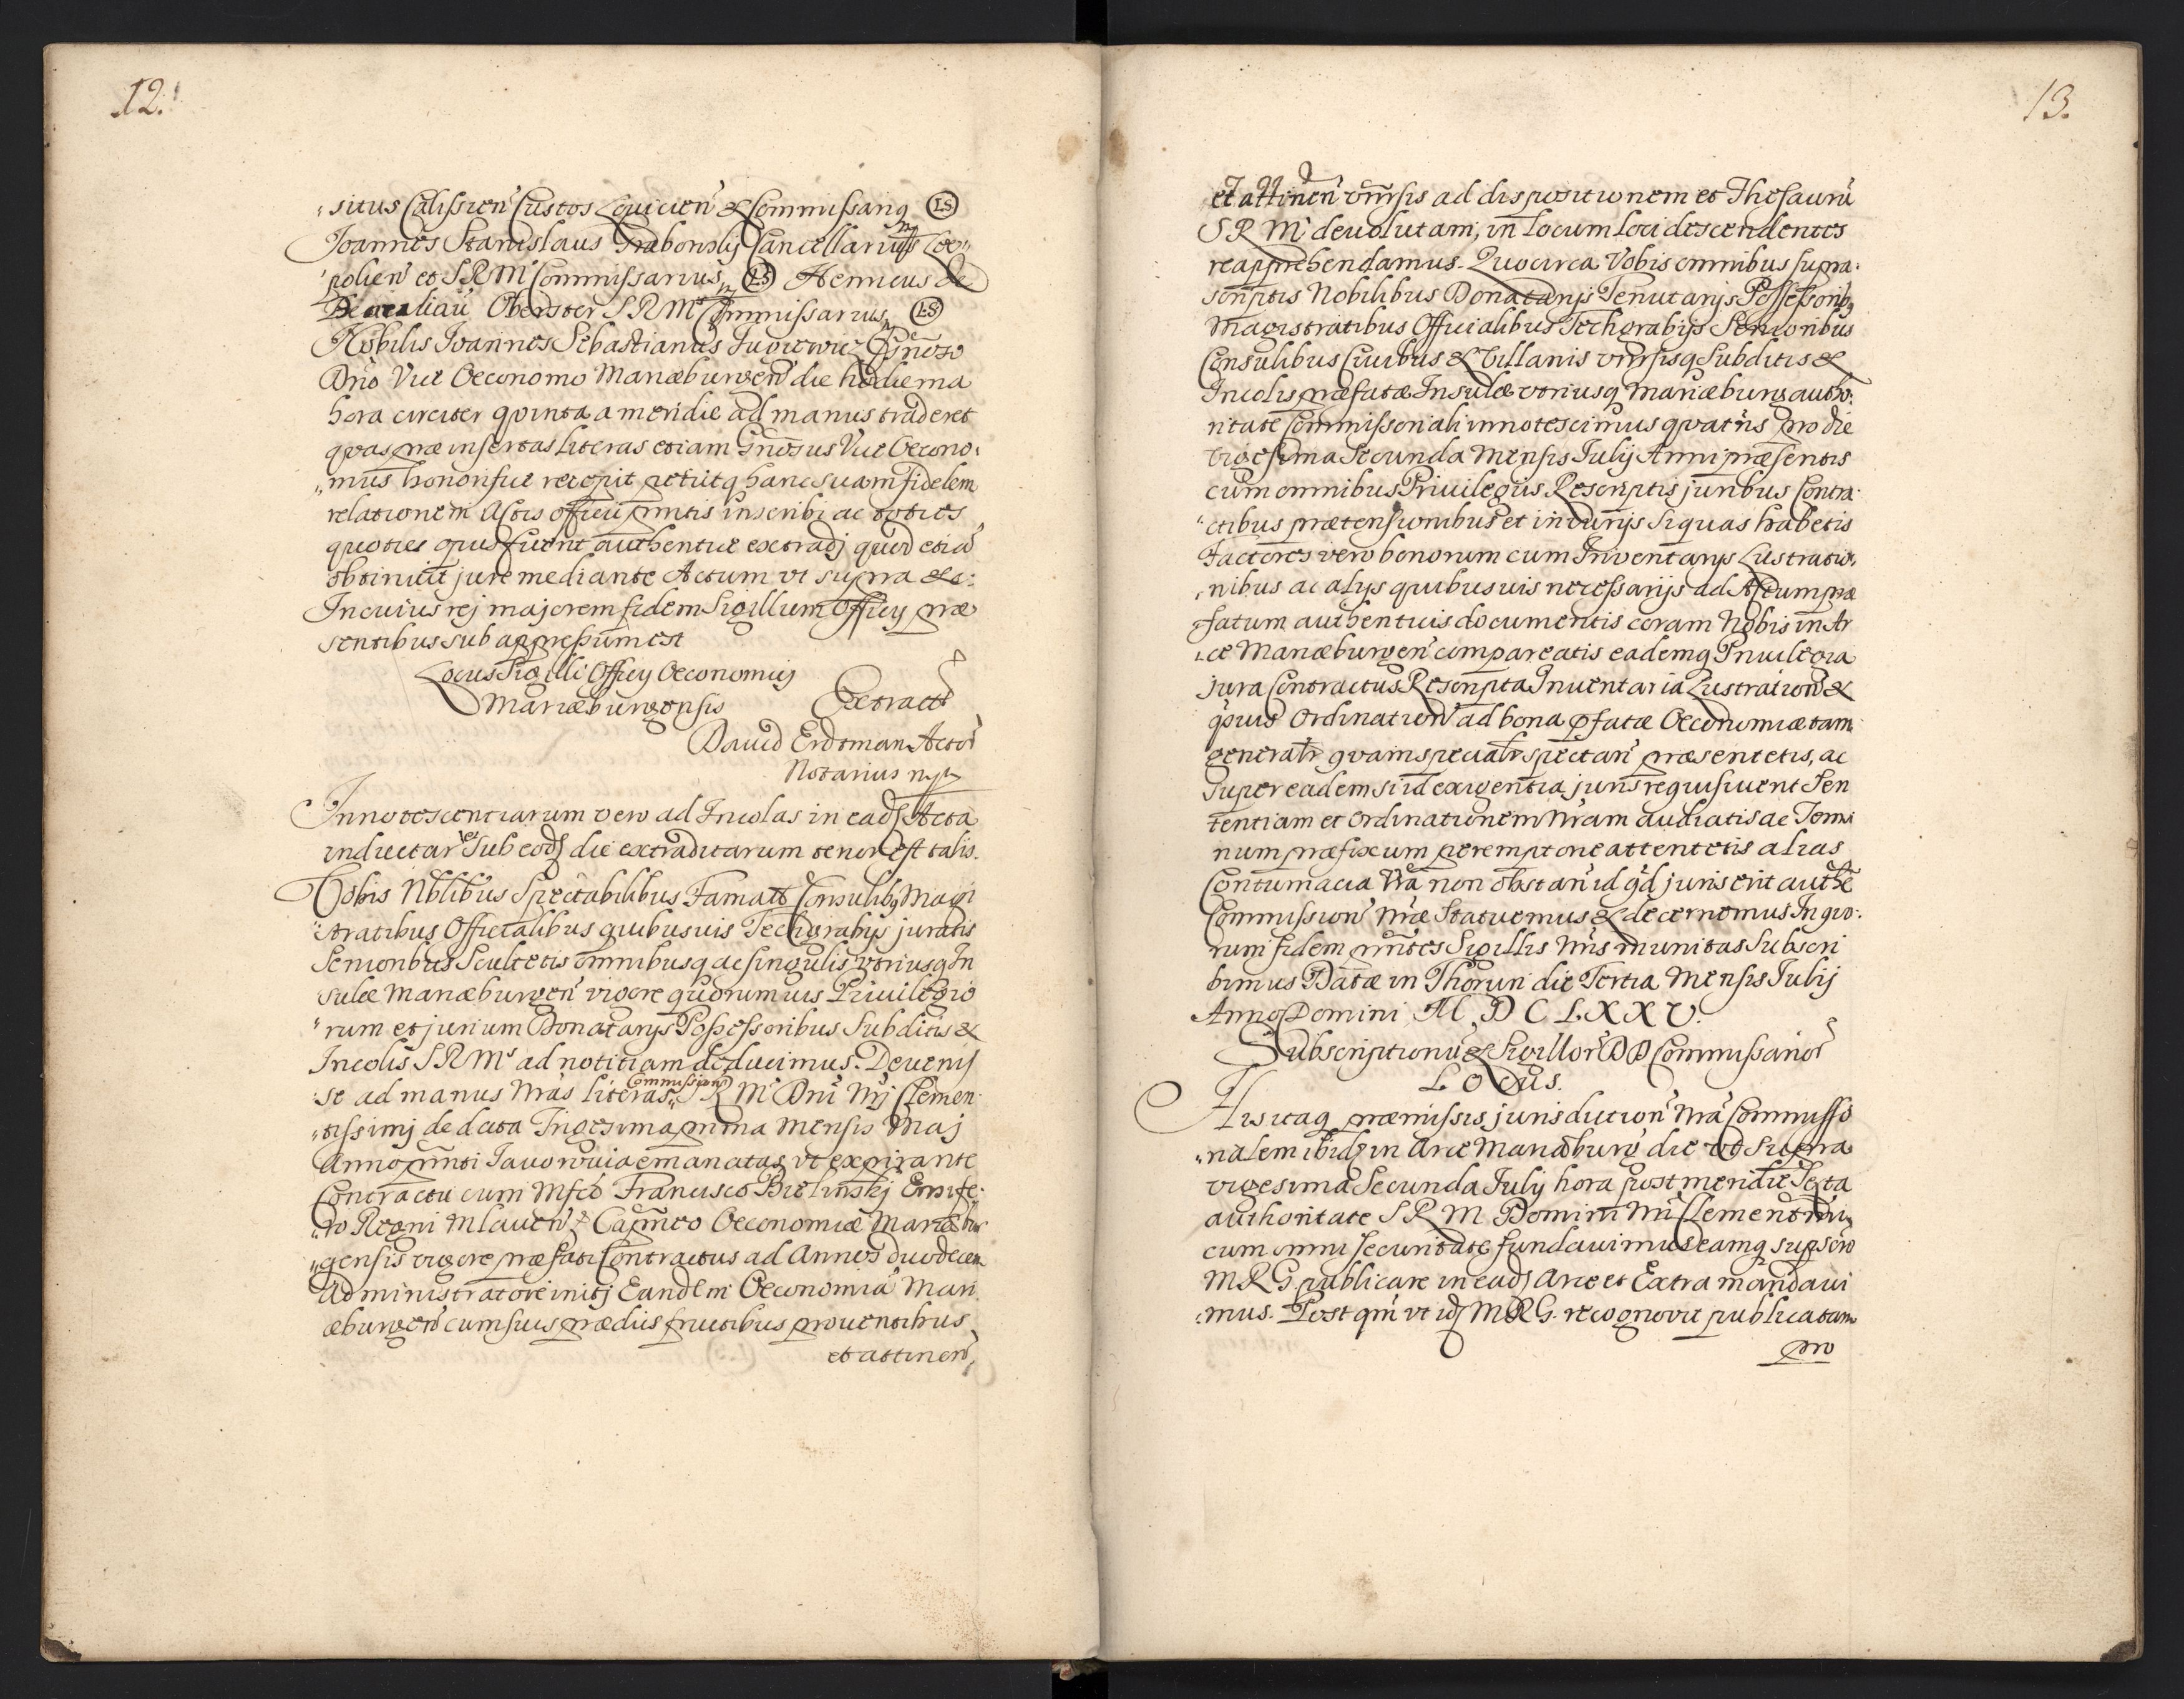 12.
situs Calissien Custos Lovicien & Commissariq LS
Joannes Stanislaus Grabonsky Cancellarius Leo„
polien et S R M Commissarius LS Henricus de
Oberster S R Ms Commissarius LS
Nobilis Joannes Sebastianus Gnoso
Dno Vice Oeconomo Mariæburgen die hodierna
hora circiter qvinta a meridie ad manus traderet
qvas præinsertas literas etiam Gnosus Vice Oecono:
„mus honorifice recepit petiitq hanc suam fidelem
relationem Actis officii pntis inscribi ac toties
quoties opus fuerit authentice extradj quod etia
obtinuit jure mediante Actum vt supra &c:
In cuius rej majorem fidem Sigillum Officy præ
sentibus sub appressum est
Locus Sigilli Officy Oeconomiej
Mariæburgensis Extract
David Erdtman Actor
Notarius mpp
Innotescentiarum vero ad Incolas in ead Acta
inductar et sub eod die extraditarum tenor est talis.
Vobis Nblibus Spectabilibus Famatt Consulibq Magi
stratibus Officialibus quibusuis Techgrabys juratis
Senioribus Scultetis omnibusq ac singulis vtriusq In
sulæ Mariæburgen vigore quorumuis Priuilegio
„rum et jurium Donatarys Possessoribus Subditis &
Incolis S R Ms ad notitiam deducimus. Devenis
se ad manus Nras literas Commission S R M Dni Nrj Clemen
„tissimj de data Trigesima prima Mensis Maj
Anno pnti Javoroviæ emanatas vt expirante
Contractu cum Mfco Francisco Bielinskj Ensife:
„ro Regni Mlauen & Capneo Oeconomiæ Mariæbur
„gensis vigore præfati Contractus ad Annos duodecem
Administratore initj Eandem Oeconomia Mari
æburgen cum suis prædiis fructibus prouentibus
et attinen,
13.
et attinen vnvrsis ad dispositionem et Thesauru
S R M deuolutam, in locum loci descendentes
reapprehendamus. Quocirca Vobis omnibus supra:
scriptis Nobilibus Donatarys Tenutarys Possessoribq
Magistratibus Officialibus Techgrabys Senioribus
Consulibus Ciuibus & Villanis vnvrsisq Subditis &
Incolis præfatæ Insulæ vtriusq Mariæburg autho:
ritate Commissoriali innotescimus qvatns pro die
vigesima Secunda Mensis Julij Anni præsentis
cum omnibus Priuilegiis Rescriptis juribus Contra:
ctibus prætensionibus et iniurijs si quas habetis
Factores vero bonorum cum Inventarys Lustratio„
nibus ac alys quibusuis necessarijs ad Actum præ
fatum authenticis documentis coram Nobis in Ar
„ce Mariæburgen compareatis eademq Priuilegia
jura Contractus Rescripta Inuentaria Lustration &
qvuis Ordination ad bona pfatæ Oeconomiæ tam
generalr qvam specialr spectan præsentetis, ac
super eadem si id exigentia juris requisiuerit Sen
tentiam et Ordinationem Nram audiatis ac Termi
num præfixum peremptorie attentetis alias
Contumacia Vra non obstan id qd juris erit authe
Commission Nræ Statuemus & decernemus In qvo:
rum fidem pntes Sigillis Nris munitas Subscri
bimus Datæ in Thorun die Tertia Mensis Julij
Anno Domini M. D C L X X V.
Subscriptionu & Sigillor DD Commissarior
L O C U S.
His itaq præmissis jurisdiction Nra Commisso
„nalem ibid in Arce Mariæburg die vt supra
vigesima Secunda July hora post meridie Sexta
authoritate S R M Domini Nri Clementmi
cum omni securitate fundauimus eamq supscro
M R G publicare in ead Arce et Extra mandaui
mus. Post qm vt id M R G. recognovit publicatam
pro